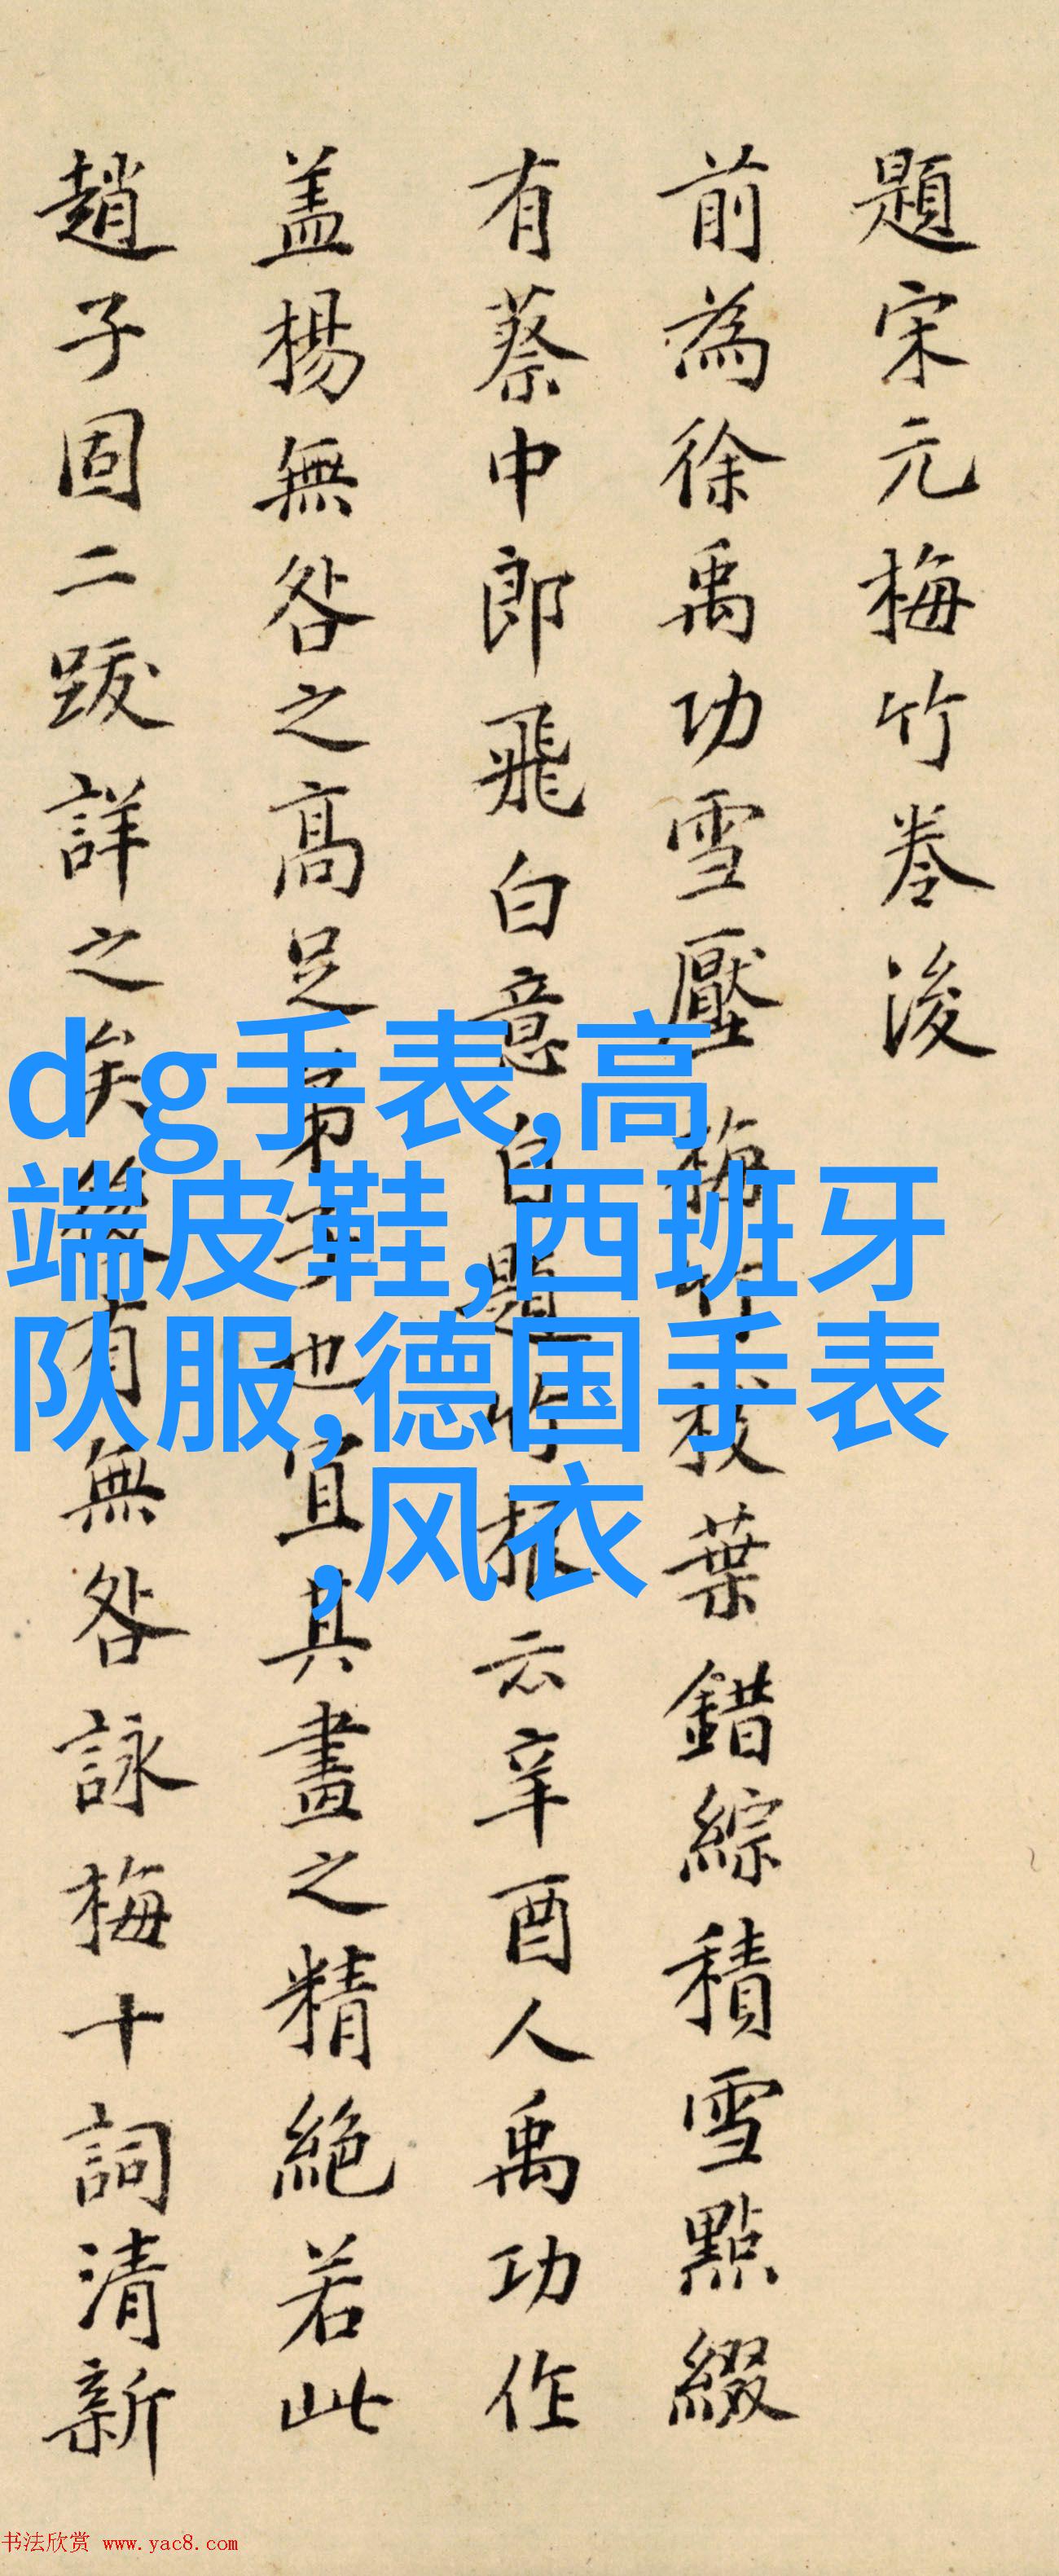 題宋元梅竹卷後
前為徐禹功雪壓梅竹枝葉錯綜積雪點綴
有蔡中郎飛白意自題竹根云辛酉人禹功作
盖楊無咎之高足弟子也宜其畫之精絕若此
趙子固二跋詳之矣後有無咎詠梅十詞清新
dg手表,高
端皮鞋,西班牙
队服,德国手表
,风衣
书法欣赏 www.yac8.com